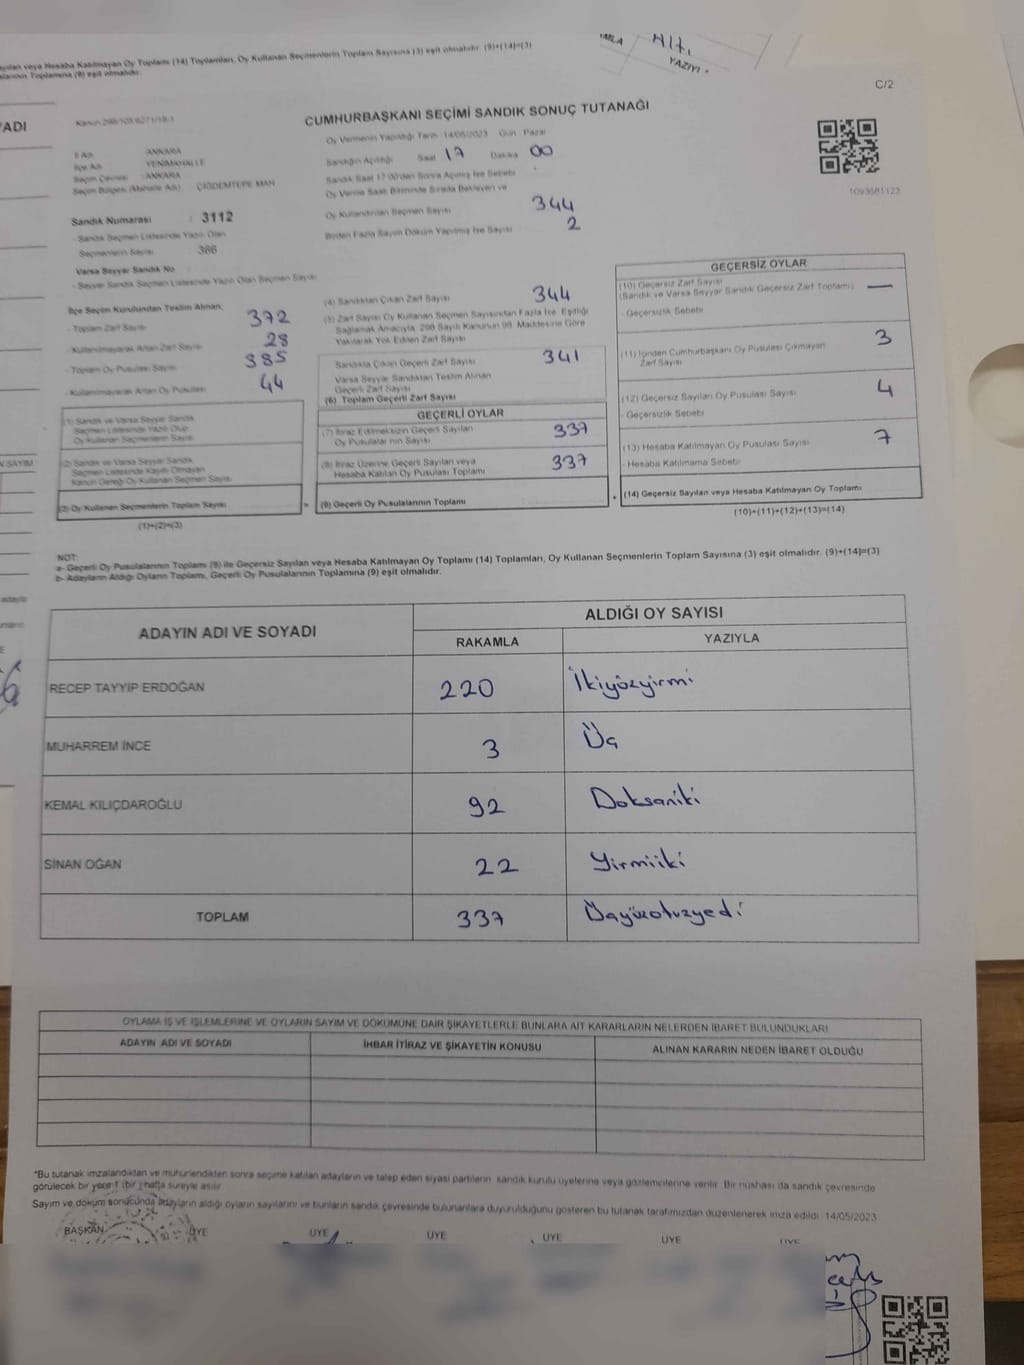 C/2
CUMHURBAŞKANI SEÇİMİ SANDIK SONUÇ TUTANAĞI
Oy Vermenin Yapıldığı Tarih 14/05/2023 Gün Pazar
İl Adı ANKARA
İlçe Adı YENİMAHALLE
Seçim Çevresi ANKARA
Seçim Bölgesi (Mahalle Adı) ÇİĞDEMTEPE MAH
Sandık Numarası : 3112
- Sandık Seçmen Listesinde Yazılı Olan
Seçmenlerin Sayısı : 366
Varsa Seyyar Sandık No :
- Seyyar Sandık Seçmen Listesinde Yazılı Olan Seçmen Sayısı
Sandığın Açıldığı Saat 17 Dakika 00
Sandık Saat 17:00'den Sonra Açılmış İse Sebebi
Oy Verme Saati Bitiminde Sırada Bekleyen ve
Oy Kullandırılan Seçmen Sayısı 344
Birden Fazla Sayım Döküm Yapılmış İse Sayısı 2
1093681123
İlçe Seçim Kurulundan Teslim Alınan:
- Toplam Zarf Sayısı 372
- Kullanılmayarak Artan Zarf Sayısı 28
- Toplam Oy Pusulası Sayısı 385
- Kullanılmayarak Artan Oy Pusulası 44
(1) Sandık ve Varsa Seyyar Sandık
Seçmen Listesinde Yazılı Olup
Oy Kullanan Seçmenlerin Sayısı
(2) Sandık ve Varsa Seyyar Sandık
Seçmen Listesinde Kayıtlı Olmayan
Kanun Gereği Oy Kullanan Seçmen Sayısı
(3) Oy Kullanan Seçmenlerin Toplam Sayısı
(1)+(2)=(3)
(4) Sandıktan Çıkan Zarf Sayısı 344
(5) Zarf Sayısı Oy Kullanan Seçmen Sayısından Fazla İse, Eşitliği
Sağlamak Amacıyla, 298 Sayılı Kanunun 98. Maddesine Göre
Yakılarak Yok Edilen Zarf Sayısı
Sandıkta Çıkan Geçerli Zarf Sayısı 341
Varsa Seyyar Sandıktan Teslim Alınan
Geçerli Zarf Sayısı
(6) Toplam Geçerli Zarf Sayısı
GEÇERLİ OYLAR
(7) İtiraz Edilmeksizin Geçerli Sayılan
Oy Pusulalarının Sayısı 337
(8) İtiraz Üzerine Geçerli Sayılan veya
Hesaba Katılan Oy Pusulası Toplamı 337
(9) Geçerli Oy Pusulalarının Toplamı
GEÇERSİZ OYLAR
(10) Geçersiz Zarf Sayısı —
(Sandık ve Varsa Seyyar Sandık Geçersiz Zarf Toplamı)
- Geçersizlik Sebebi
(11) İçinden Cumhurbaşkanı Oy Pusulası Çıkmayan 3
Zarf Sayısı
(12) Geçersiz Sayılan Oy Pusulası Sayısı 4
- Geçersizlik Sebebi
(13) Hesaba Katılmayan Oy Pusulası Sayısı 7
- Hesaba Katılmama Sebebi
(14) Geçersiz Sayılan veya Hesaba Katılmayan Oy Toplamı
(10)+(11)+(12)+(13)=(14)
NOT:
a- Geçerli Oy Pusulalarının Toplamı (9) ile Geçersiz Sayılan veya Hesaba Katılmayan Oy Toplamı (14) Toplamları, Oy Kullanan Seçmenlerin Toplam Sayısına (3) eşit olmalıdır. (9)+(14)=(3)
b- Adayların Aldığı Oyların Toplamı, Geçerli Oy Pusulalarının Toplamına (9) eşit olmalıdır.
ADAYIN ADI VE SOYADI
ALDIĞI OY SAYISI
RAKAMLA YAZIYLA
RECEP TAYYİP ERDOĞAN 220 İkiyüzyirmi
MUHARREM İNCE 3 Üç
KEMAL KILIÇDAROĞLU 92 Doksaniki
SİNAN OĞAN 22 Yirmiiki
TOPLAM 337 Üçyüzotuzyedi
OYLAMA İŞ VE İŞLEMLERİNE VE OYLARIN SAYIM VE DÖKÜMÜNE DAİR ŞİKAYETLERLE BUNLARA AİT KARARLARIN NELERDEN İBARET BULUNDUKLARI
ADAYIN ADI VE SOYADI İHBAR İTİRAZ VE ŞİKAYETİN KONUSU ALINAN KARARIN NEDEN İBARET OLDUĞU
*Bu tutanak imzalandıktan ve mühürlendikten sonra seçime katılan adayların ve talep eden siyasi partilerin sandık kurulu üyelerine veya gözlemcilerine verilir. Bir nüshası da sandık çevresinde
görülecek bir yere 1 (bir) hafta süreyle asılır.
Sayım ve döküm sonucunda adayların aldığı oyların sayılarını ve bunların sandık çevresinde bulunanlara duyurulduğunu gösteren bu tutanak tarafımızdan düzenlenerek imza edildi. 14/05/2023
BAŞKAN ÜYE ÜYE ÜYE ÜYE ÜYE ÜYE